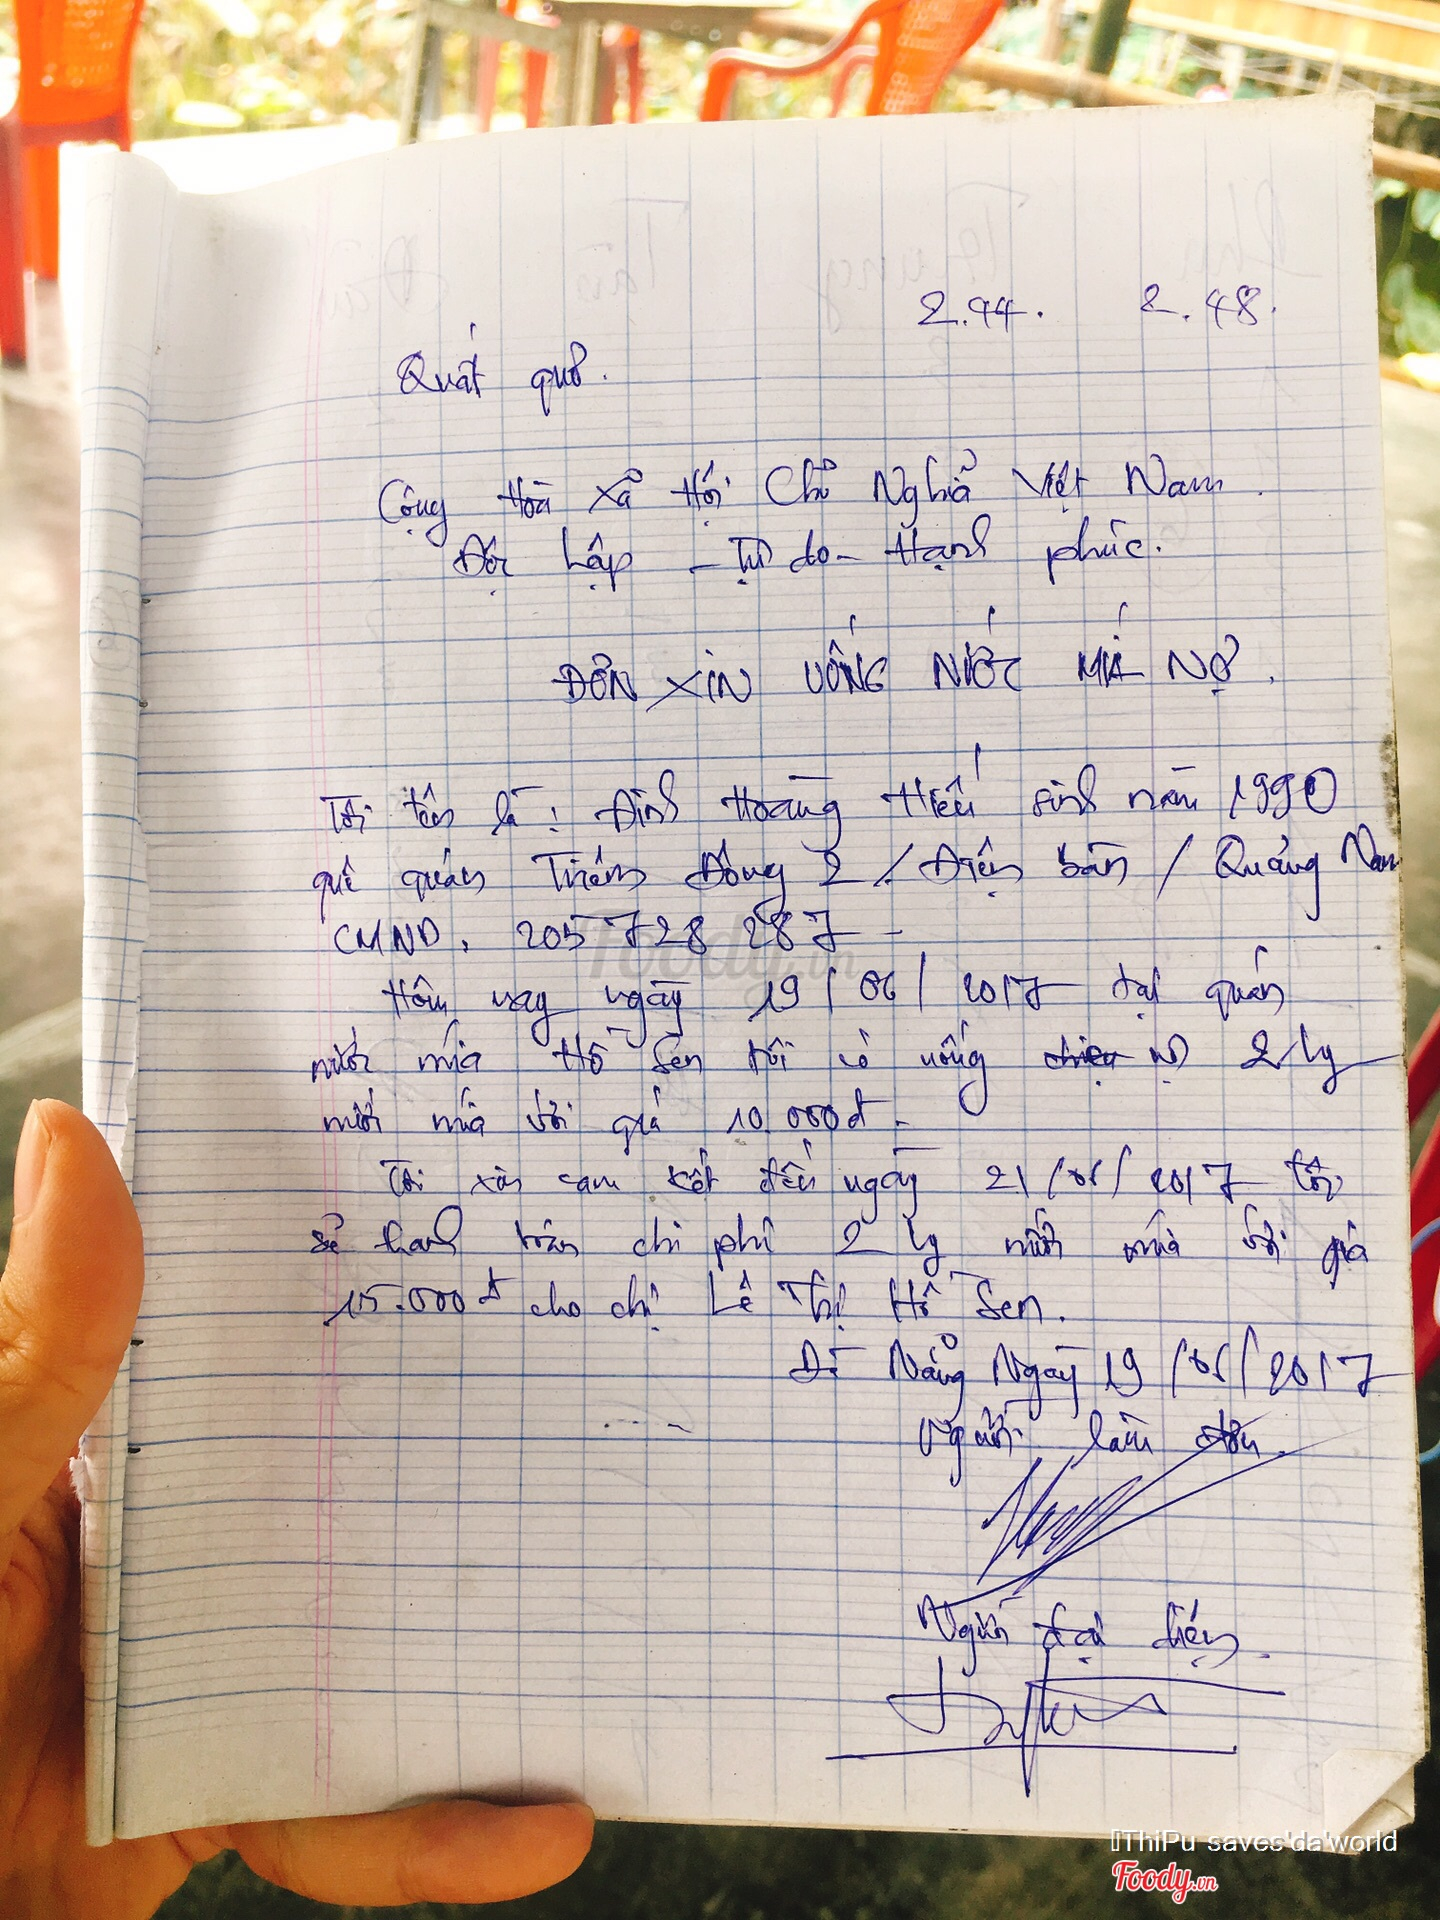 2.44. 2.48.
Quát quơ.
Cộng Hoà Xã Hội Chủ Nghĩa Việt Nam.
Độc Lập - Tự do - Hạnh phúc.
ĐƠN XIN UỐNG NƯỚC MÍA NỢ.
Tôi tên là: Đinh Hoàng Hiếu sinh năm 1990
quê quán Đông 2 / Điện bàn / Quảng Nam
CMND. 205728287
Hôm nay ngày 19/06/2017 tại quán
nước mía Hồ Sen tôi có uống nợ 2 ly
nước mía với giá 10.000đ.
Tôi xin cam kết đến ngày 21/06/2017 tôi
sẽ thanh toán chi phí 2 ly nước mía với giá
15.000đ cho chị Lê Thị Hồ Sen.
Đà Nẵng Ngày 19/06/2017
Người làm đơn
Người đại diện.
Foody.vn
ThiPu saves'da'world
Foody.vn